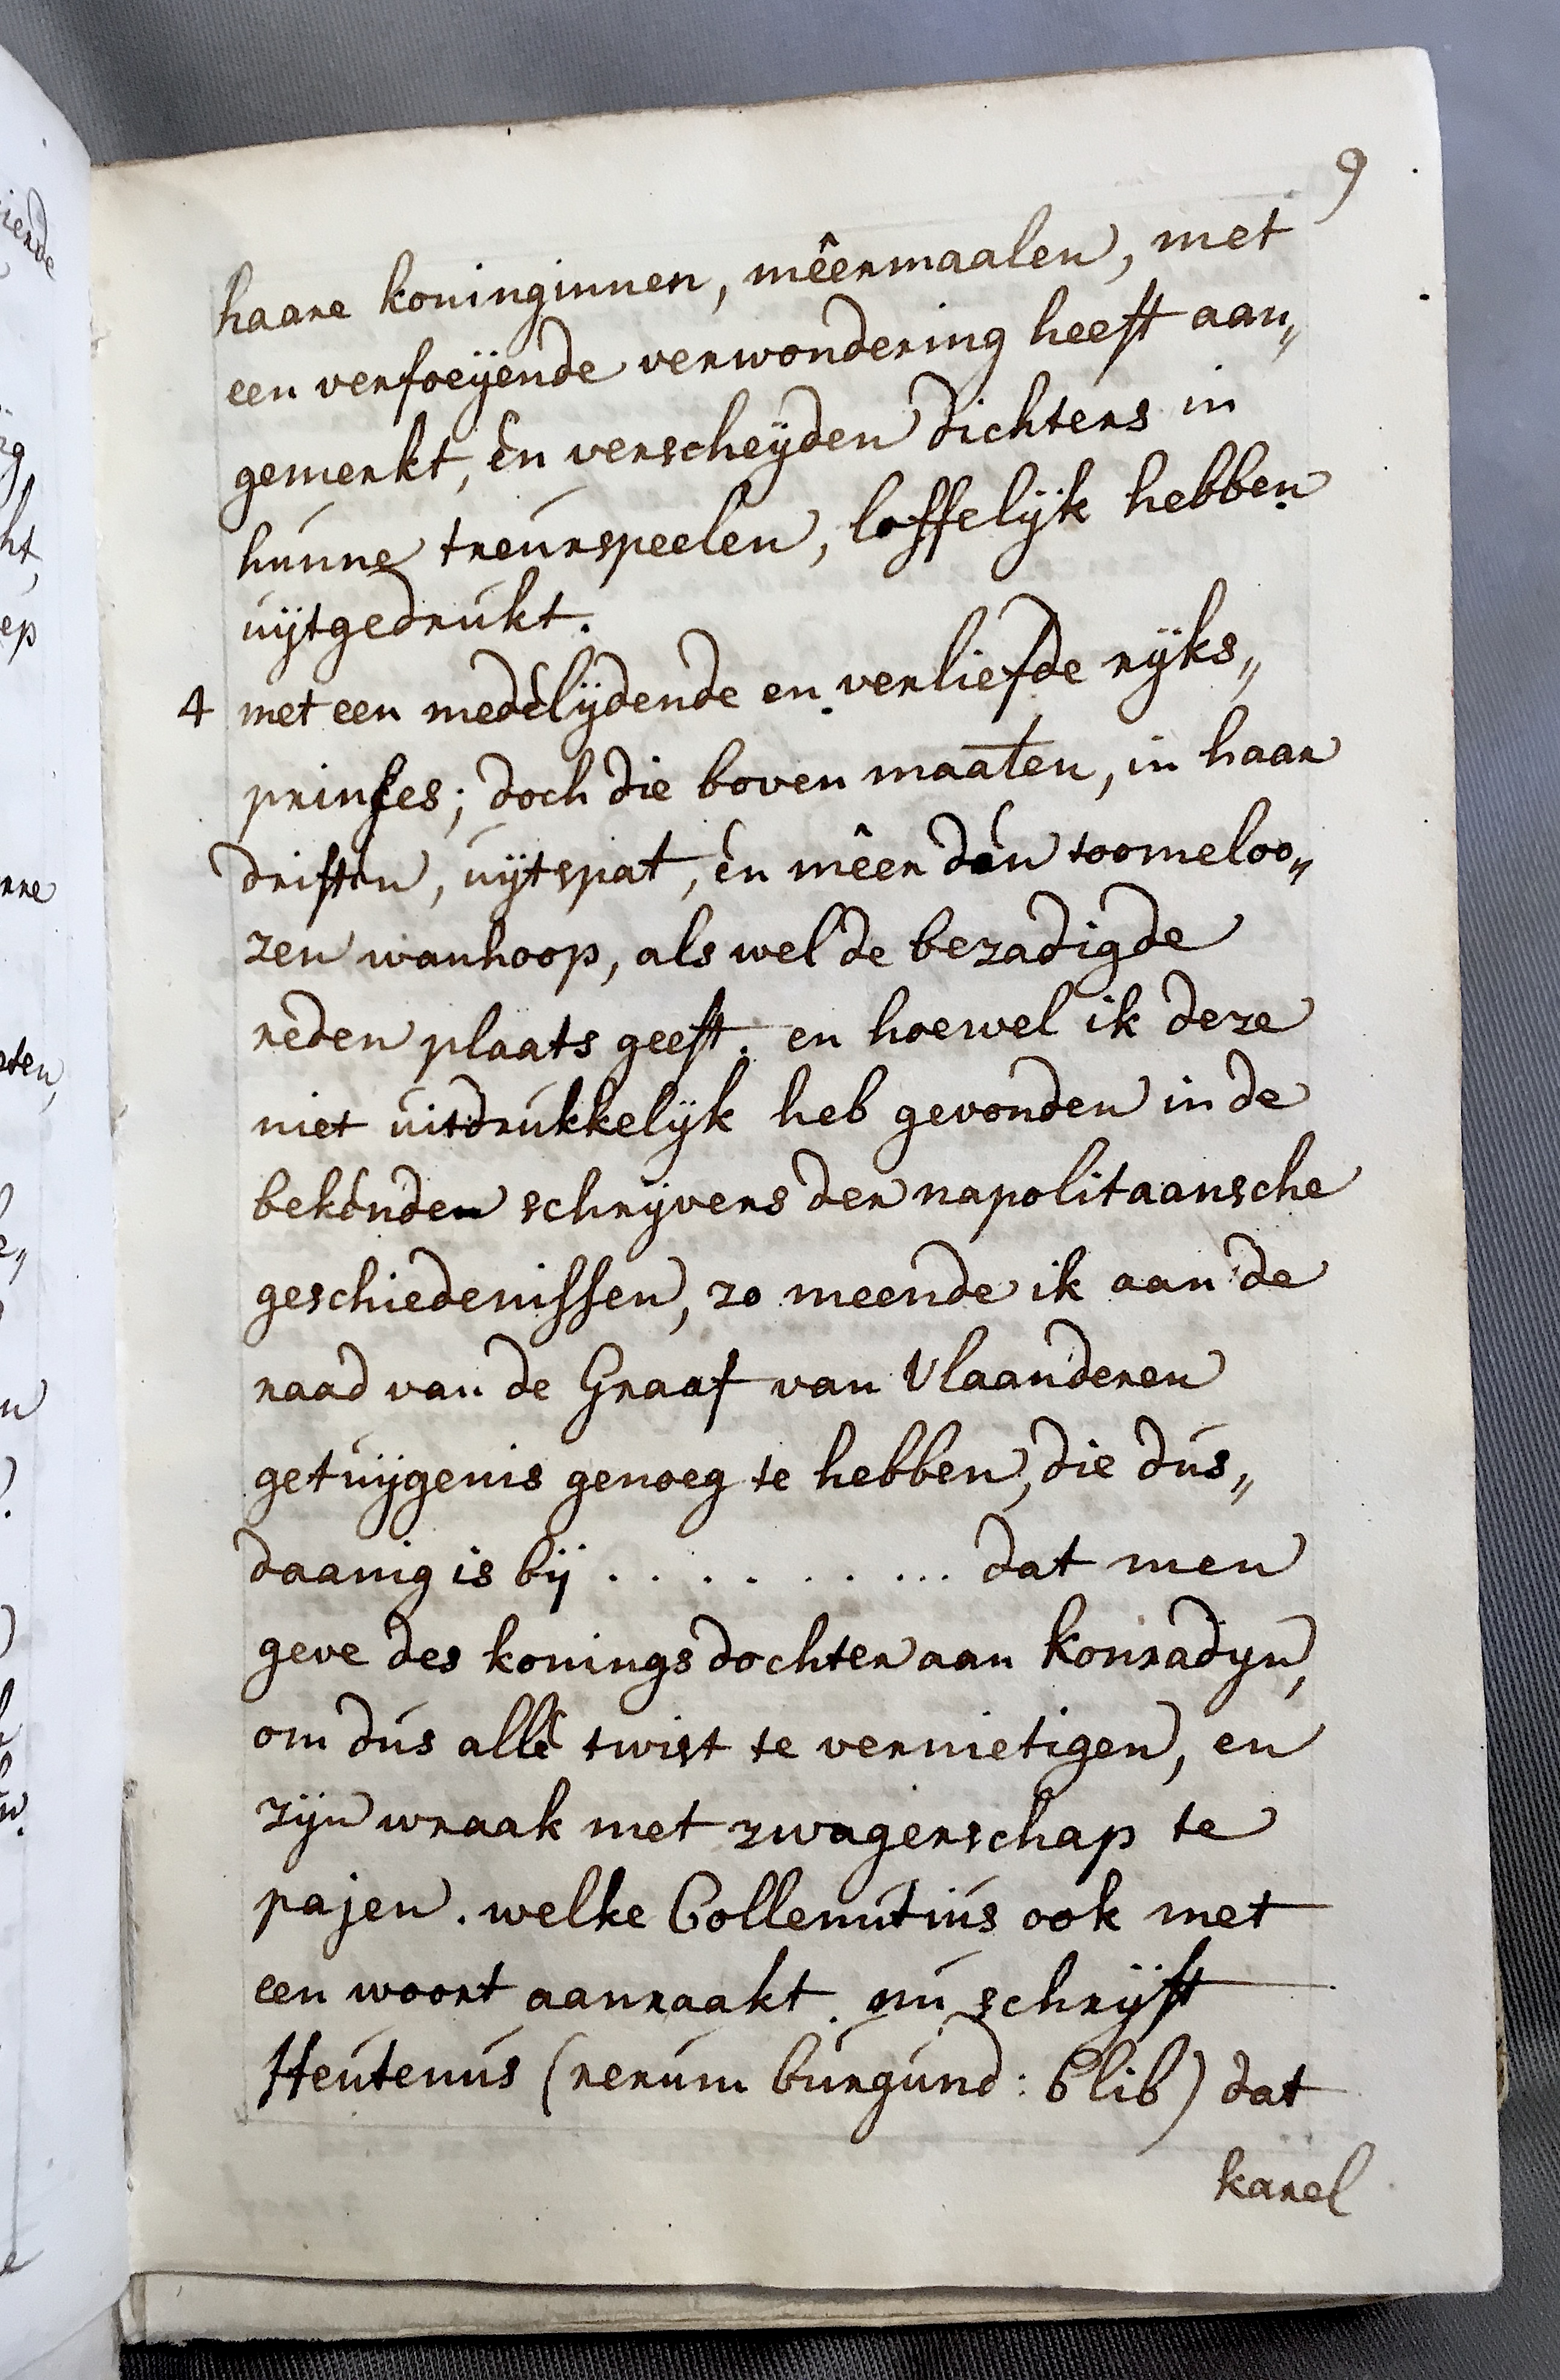 9
haare koninginnen, mêermaalen, met
een verfoeÿende verwondering heeft aan„
gemerkt, èn verscheÿden dichters in
hunne treurspeelen, loffelÿk hebben
uÿtgedrukt.
4 met een medèlÿdende en verliefde rÿks„
prinses; doch die boven maaten, in haar
driften, uÿtspat, èn mêer dan toomeloo„
zen wanhoop, als wel de bezadigde
reden plaats geeft. en hoewel ik deze
niet uitdrukkelÿk heb gevonden in de
bekénden schrÿvers der napolitaansche
geschiedenissen, zo meende ik aan de
raad van de Graaf van Vlaanderen
getuÿgenis genoeg te hebben, die dus„
daanig is bÿ . . . . . . . ... dat men
geve des konings dochter aan Konradyn,
om dus allè twist te vernietigen, en
zÿn wraak met zwagerschap te
pajen. welke Collenutius ook met
een woort aanraakt. nu schrÿft
Heutenus (rerum burgund: 6 lib) dat
karel